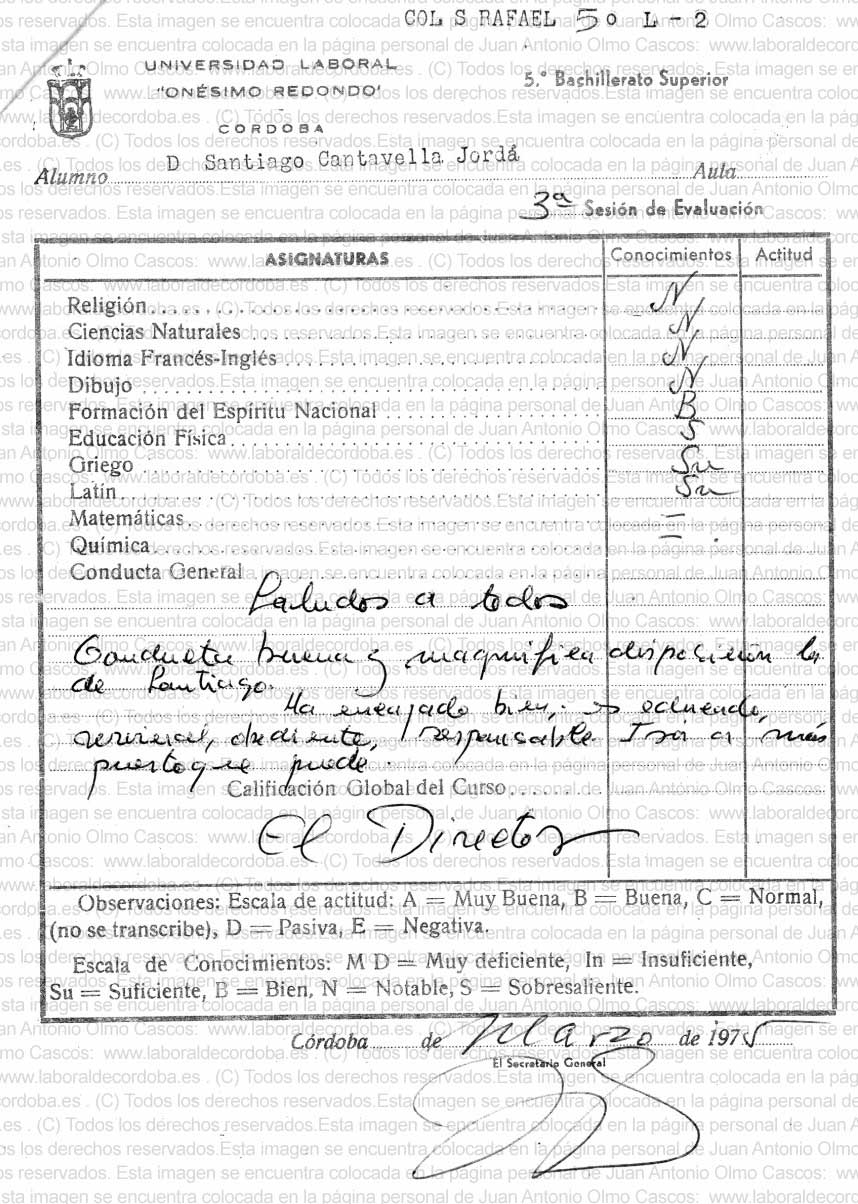 COL S RAFAEL 5º L - 2
UNIVERSIDAD LABORAL
"ONÉSIMO REDONDO"
CORDOBA
5.º Bachillerato Superior
Alumno D Santiago Cantavella Jordá Aula
3ª Sesión de Evaluación
ASIGNATURAS Conocimientos Actitud
Religión N
Ciencias Naturales N
Idioma Francés-Inglés N
Dibujo N
Formación del Espíritu Nacional B
Educación Física S
Griego Su
Latín Su
Matemáticas =
Química =
Conducta General
Saludos a todos
Conducta buena y magnífica disposición la
de Santiago.
Ha encajado bien, es educado,
servicial, obediente, responsable Irá a más
puesto que puede.
Calificación Global del Curso
El Director
Observaciones: Escala de actitud: A = Muy Buena, B = Buena, C = Normal,
(no se transcribe), D = Pasiva, E = Negativa.
Escala de Conocimientos: M D = Muy deficiente, In = Insuficiente,
Su = Suficiente, B = Bien, N = Notable, S = Sobresaliente.
Córdoba de Marzo de 1975
El Secretario General
Esta imagen se encuentra colocada en la página personal de Juan Antonio Olmo Cascos: www.laboraldecordoba.es . (C) Todos los derechos reservados.